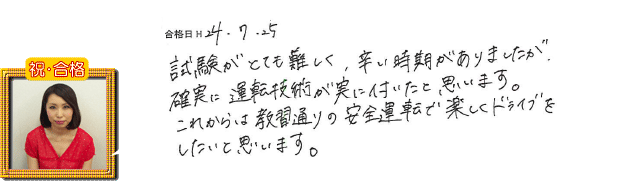 祝・合格
合格日 H 24.7.25
試験がとても難しく、辛い時期がありましたが、
確実に運転技術が実に付いたと思います。
これからは教習通りの安全運転で楽しくドライブを
したいと思います。